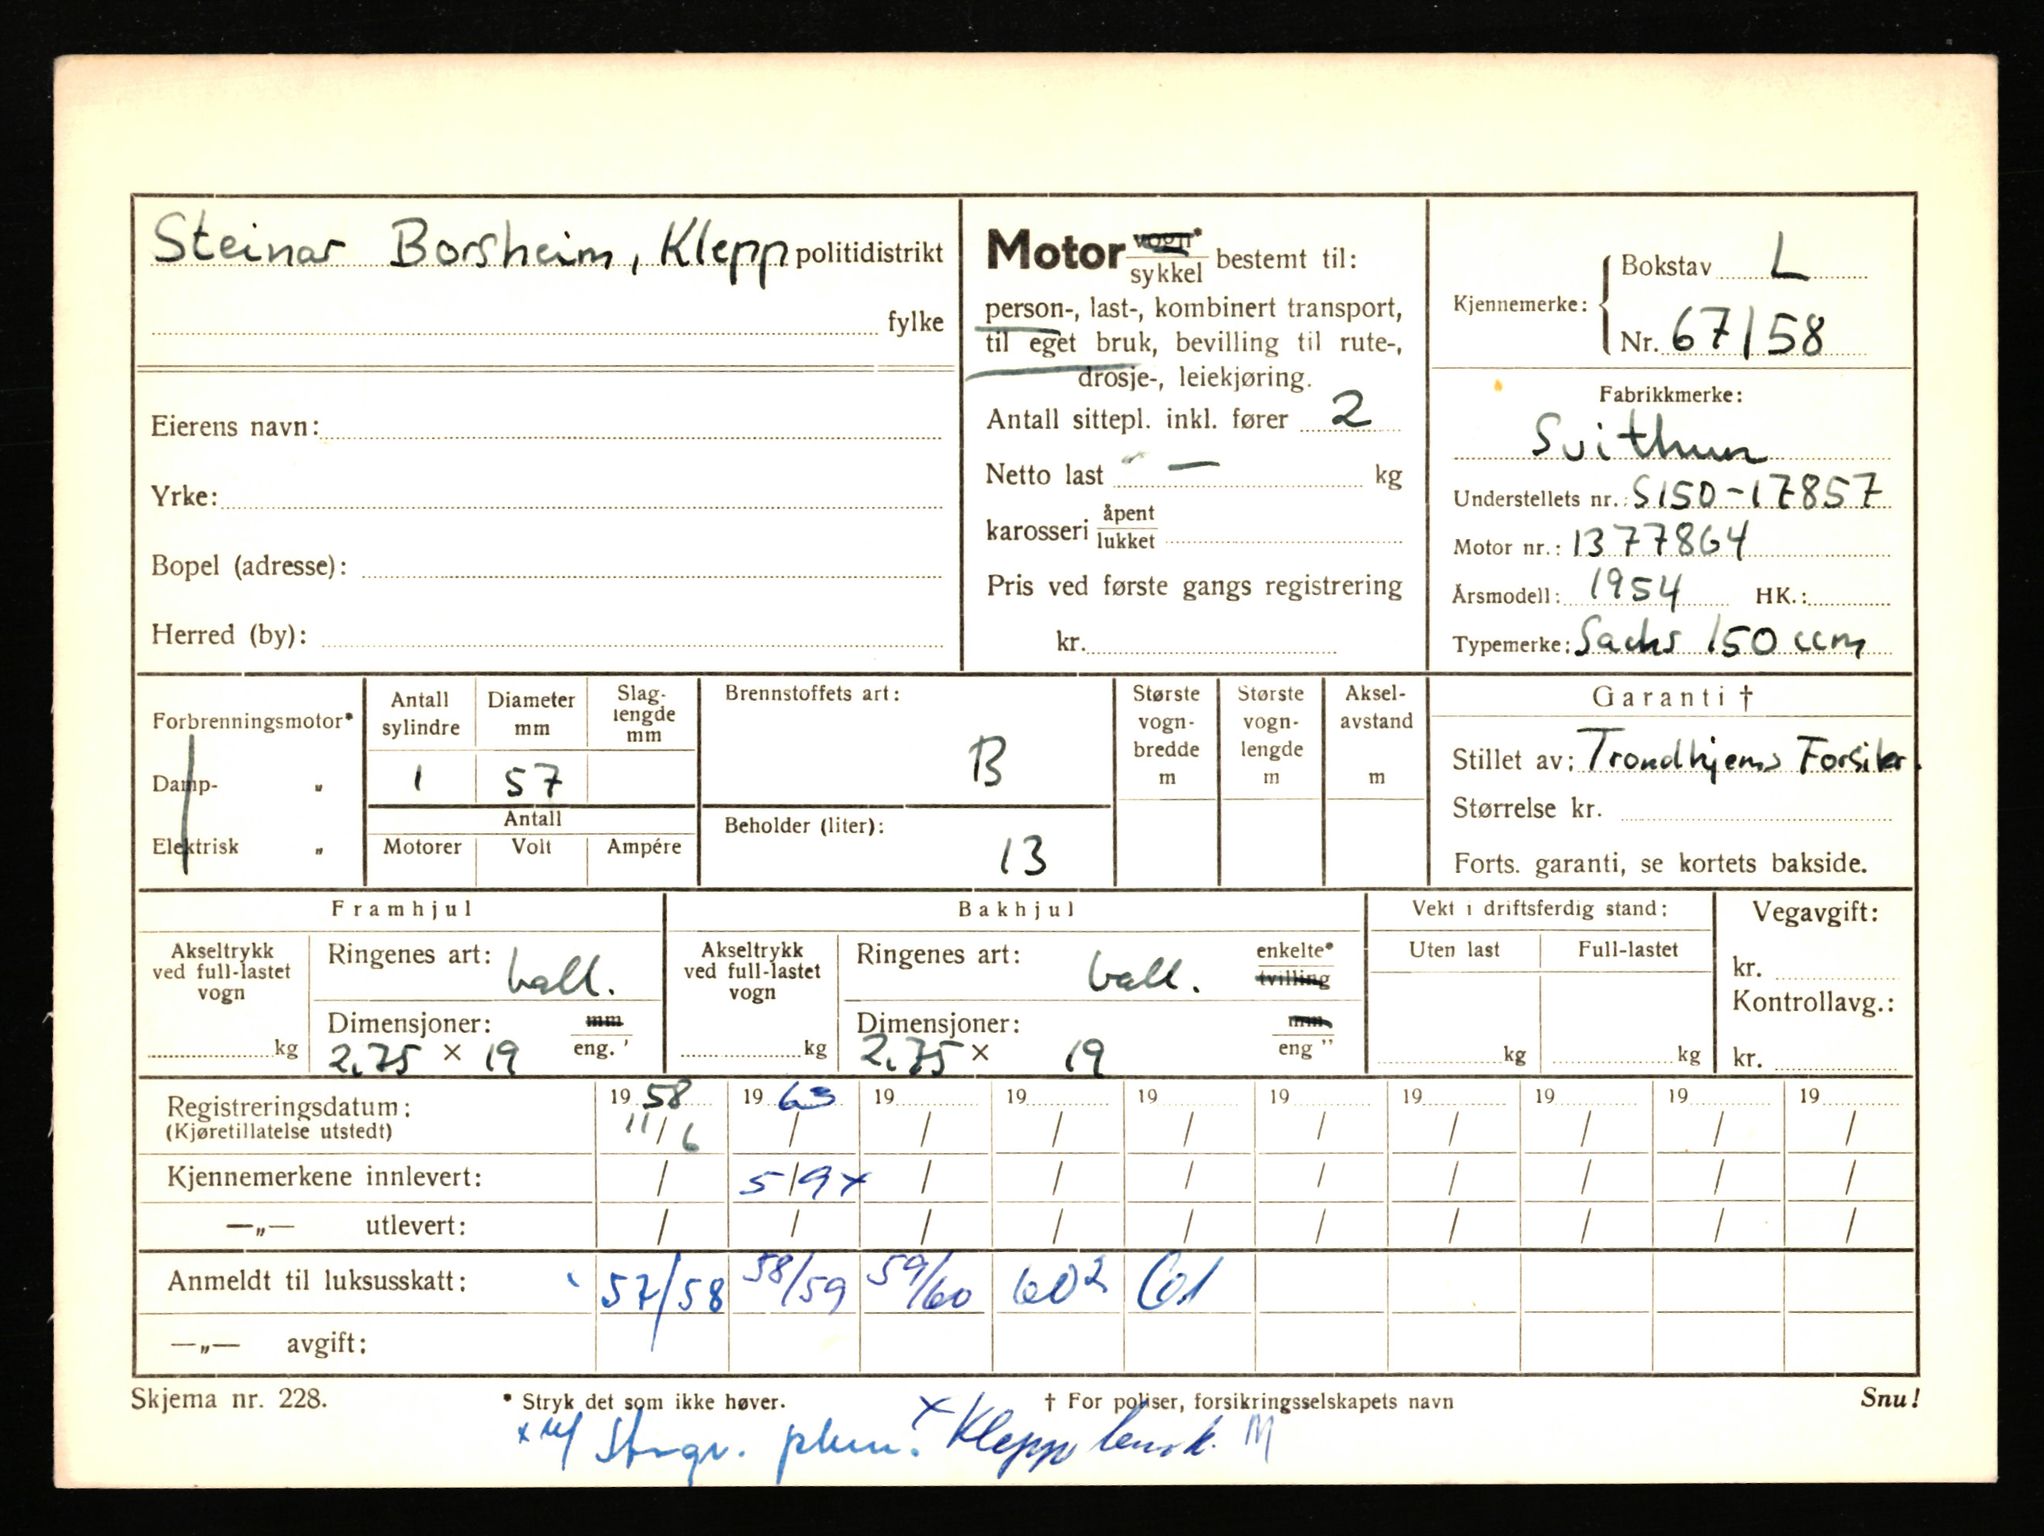 Steinar Borsheim, Klepp politidistrikt
fylke
Eierens navn:
Yrke:
Bopel (adresse):
Herred (by):
Motor vogn* sykkel bestemt til:
person-, last-, kombinert transport,
til eget bruk, bevilling til rute-,
drosje-, leiekjøring.
Antall sittepl. inkl. fører 2
Netto last — kg
karosseri åpent lukket
Pris ved første gangs registrering
kr.
Kjennemerke: Bokstav L
Nr. 67158
Fabrikkmerke:
Svithun
Understellets nr.: S150-17857
Motor nr.: 1377864
Årsmodell: 1954 HK.:
Typemerke: Sachs 150 ccm
Forbrenningsmotor*
Damp- "
Elektrisk "
Antall sylindre
1
Diameter mm
57
Slag-lengde mm
Antall
Motorer Volt Ampére
Brennstoffets art:
B
Beholder (liter):
13
Største vogn-bredde m
Største vogn-lengde m
Aksel-avstand m
Garanti †
Stillet av: Trondhjems Forsikr.
Størrelse kr.
Forts. garanti, se kortets bakside.
Framhjul
Akseltrykk ved full-lastet vogn
kg
Ringenes art: ball.
Dimensjoner: mm
2,75 × 19 eng. '
Bakhjul
Akseltrykk ved full-lastet vogn
kg
Ringenes art: ball. enkelte* tvilling
Dimensjoner: mm
2,75 × 19 eng "
Vekt i driftsferdig stand:
Uten last Full-lastet
kg kg
Vegavgift:
kr.
Kontrollavg.:
kr.
Registreringsdatum: 19 58 19 63 19 19 19 19 19 19 19 19
(Kjøretillatelse utstedt) 11/6 / / / / / / / / /
Kjennemerkene innlevert: / 5/9 x / / / / / / / /
—„— utlevert: / / / / / / / / / /
Anmeldt til luksusskatt: 57/58 58/59 59/60 60² 61
—„— avgift:
Skjema nr. 228. * Stryk det som ikke høver. † For poliser, forsikringsselskapets navn Snu!
x Klepp lensk. M